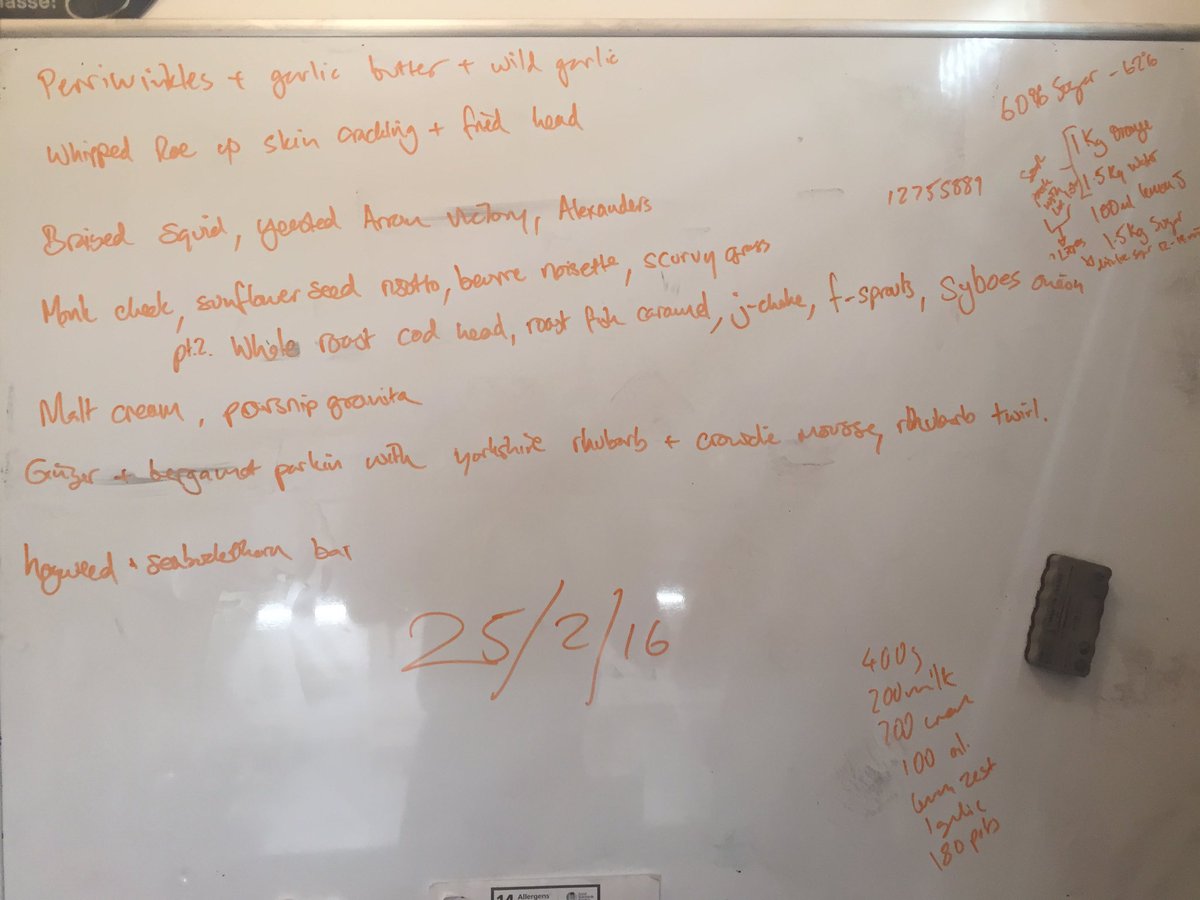 asse!
Perriwinkles + garlic butter + wild garlic
Whipped Roe up skin crackling + fried head
Braised Squid, yeasted Arran Victory, Alexanders
Monk cheek, sunflower seed risotto, beurre noisette, scurvy grass
pt.2. Whole roast cod head, roast fish caramel, j-choke, f-sprouts, Syboes onion
Malt cream, parsnip granita
Ginger + bergamot parkin with yorkshire rhubarb + crowdie mousse, rhubarb twirl.
hogweed + seabuckthorn bar
25/2/16
60% Sugar - 62%
1 Kg orange
1.5 Kg water
100ml lemon J
1.5 Kg Sugar
12755889
400g
200 milk
200 cream
100 oil.
lemon zest
1 garlic
180 pots
14 Allergens